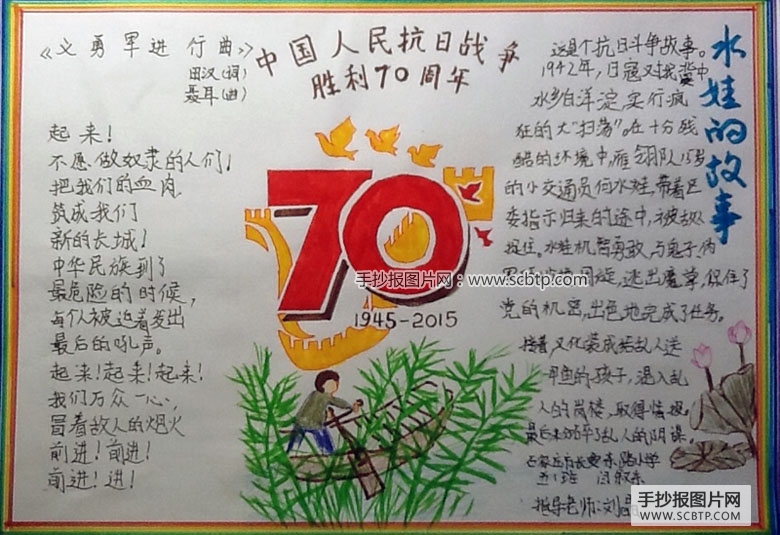 《义勇军进行曲》
田汉(词)
聂耳(曲)
起来!
不愿做奴隶的人们!
把我们的血肉
筑成我们
新的长城!
中华民族到了
最危险的时候,
每个人被迫着发出
最后的吼声。
起来!起来!起来!
我们万众一心,
冒着敌人的炮火
前进!前进!
前进!进!
中国人民抗日战争
胜利70周年
70
1945-2015
水娃的故事
这是个抗日斗争故事。
1942年,日寇又对我冀中
水乡白洋淀,实行疯
狂的大"扫荡"。在十分残
酷的环境中,雁翎队15岁
的小交通员何水娃,带着区
委指示归来的途中,被敌人
捉住。水娃机智勇敢,与鬼子、伪
周旋,逃出魔掌,保住了
党的机密,出色地完成了任务。
接着,又化装成给敌人送
鲜鱼的孩子,混入敌
人的岗楼,取得情报。
最后粉碎了敌人的阴谋。
石家庄市长安东路小学
五1班
指导老师:刘
手抄报图片网:www.scbtp.com
手抄报图片网
WWW.SCBTP.COM